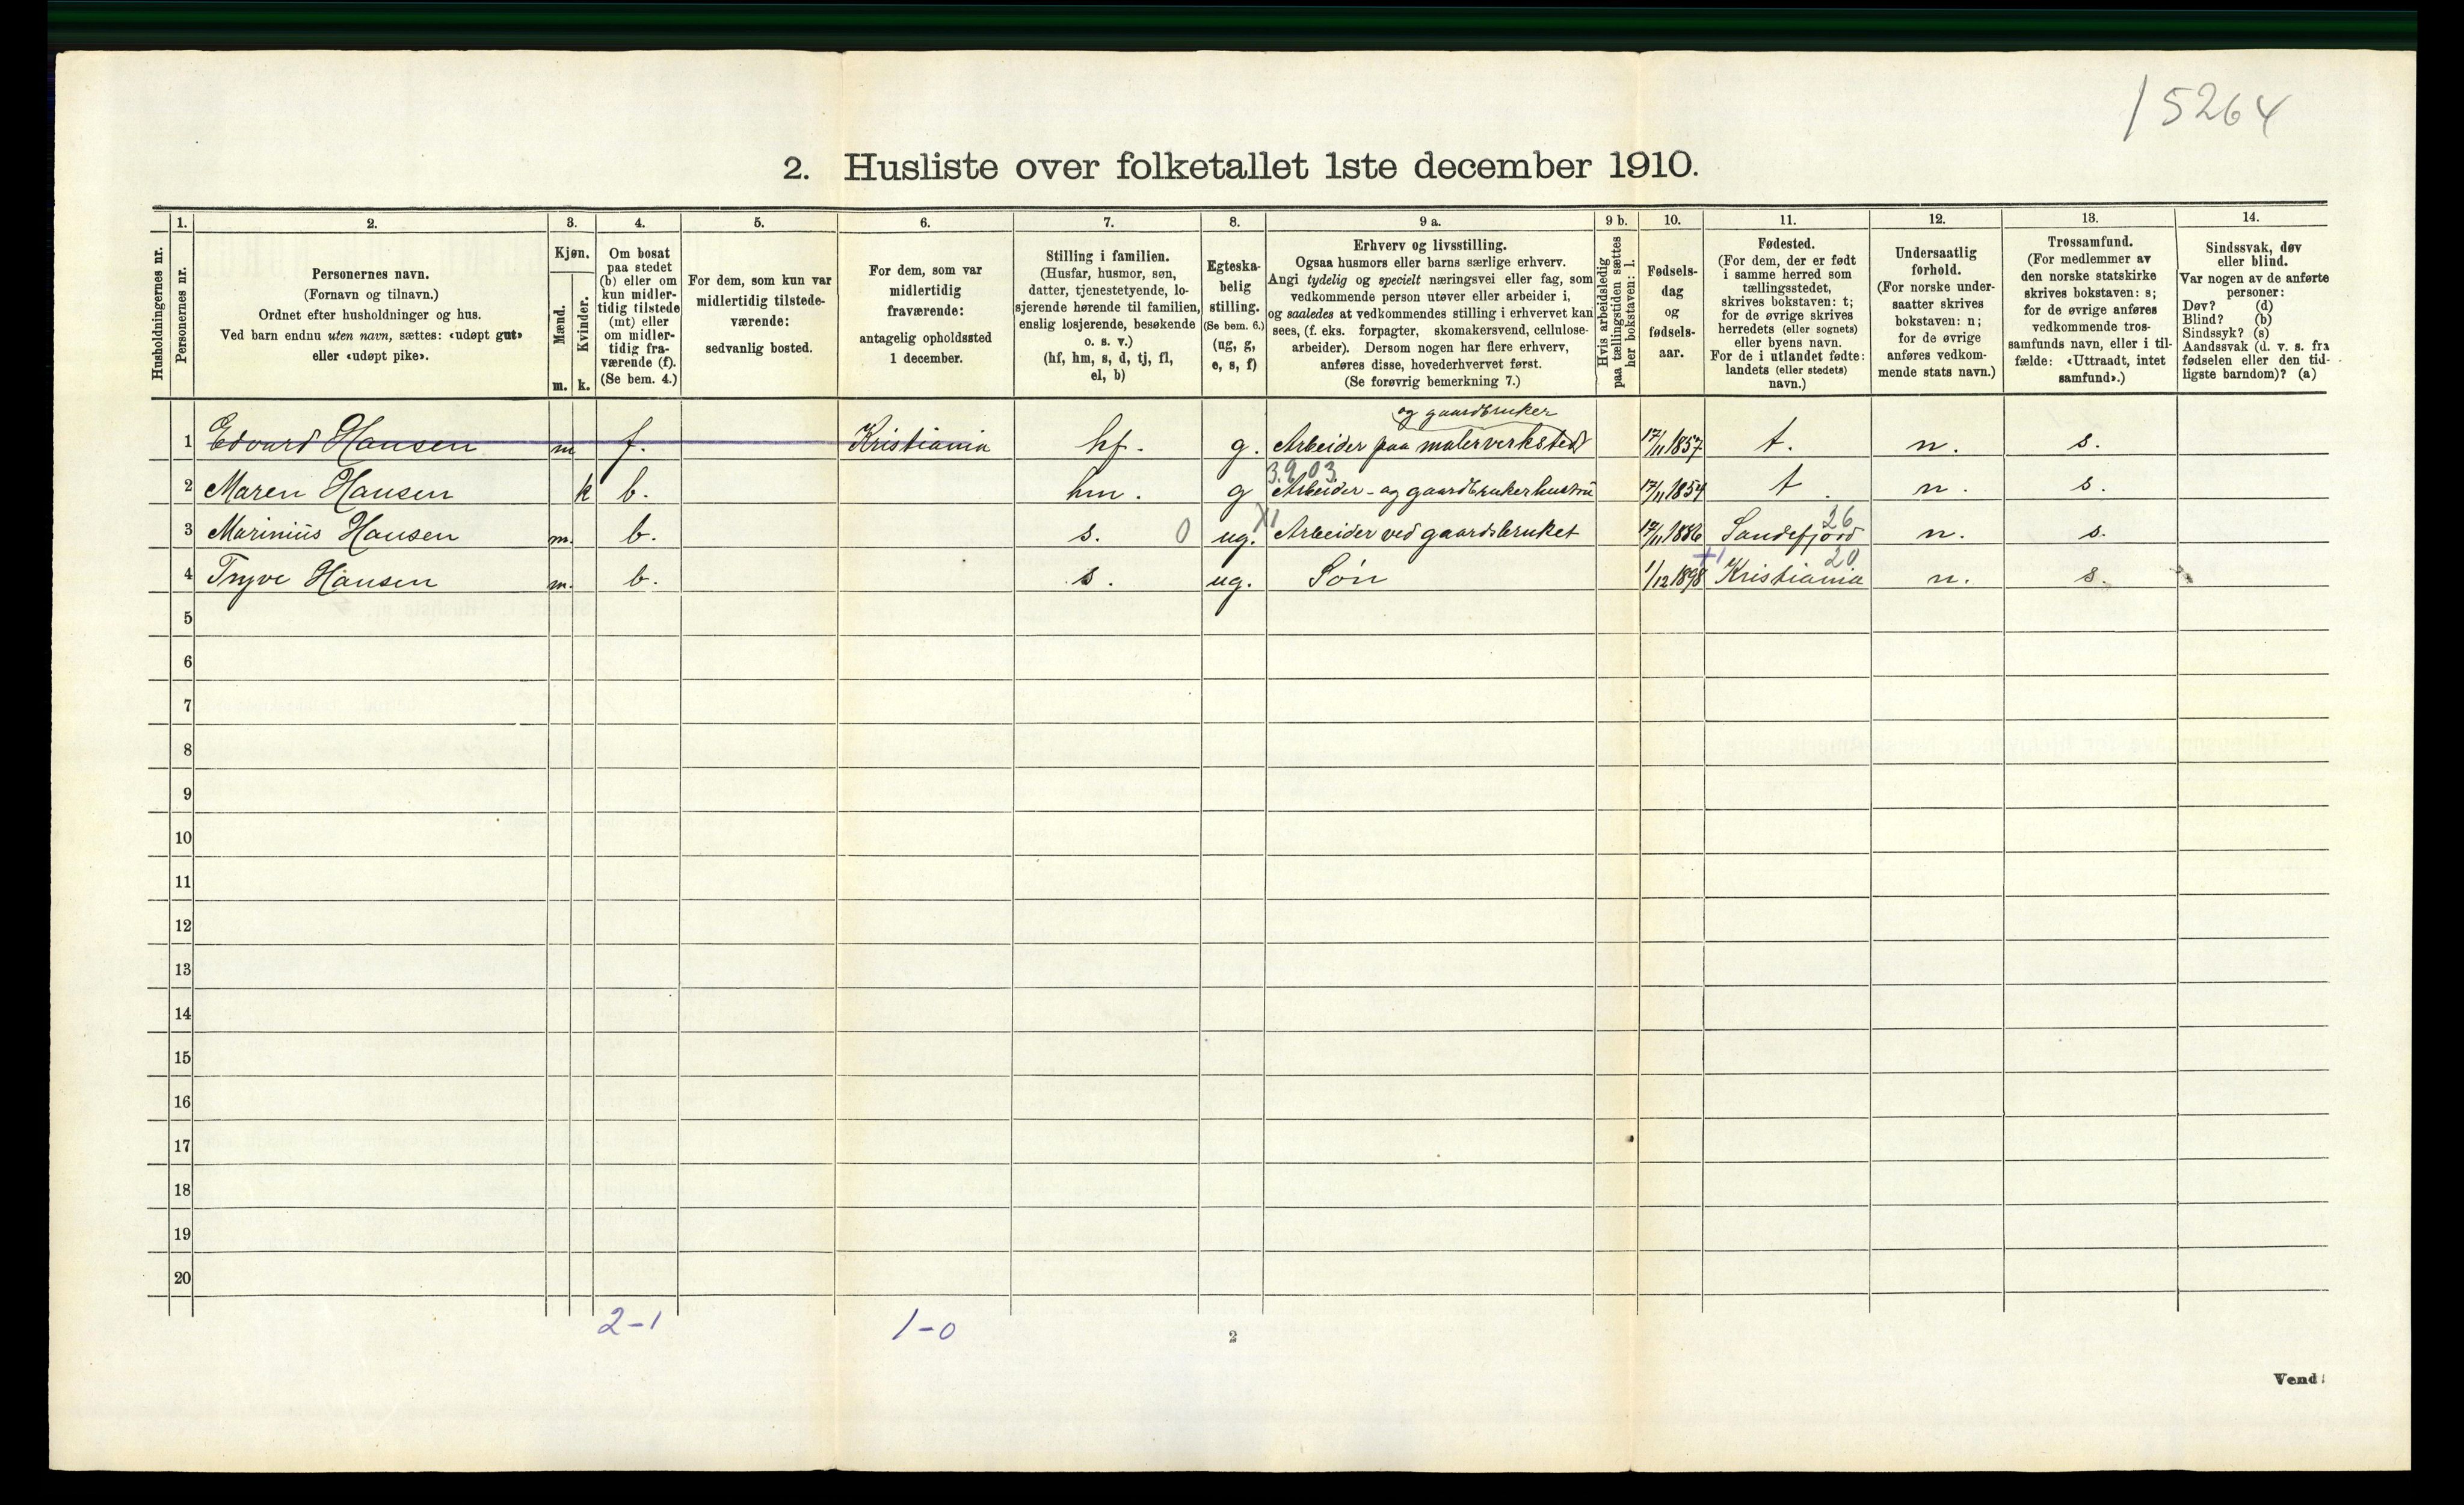 15264
2. Husliste over folketallet 1ste december 1910.
Husholdningernes nr.
1.
Personernes nr.
2.
Personernes navn.
(Fornavn og tilnavn.)
Ordnet efter husholdninger og hus.
Ved barn endnu uten navn, sættes: «udøpt gut»
eller «udøpt pike».
3.
Kjøn.
Mænd.
Kvinder.
m. k.
4.
Om bosat
paa stedet
(b) eller om
kun midler-
tidig tilstede
(mt) eller
om midler-
tidig fra-
værende (f).
(Se bem. 4.)
5.
For dem, som kun var
midlertidig tilstede-
værende:
sedvanlig bosted.
6.
For dem, som var
midlertidig
fraværende:
antagelig opholdssted
1 december.
7.
Stilling i familien.
(Husfar, husmor, søn,
datter, tjenestetyende, lo-
sjerende hørende til familien,
enslig losjerende, besøkende
o. s. v.)
(hf, hm, s, d, tj, fl,
el, b)
8.
Egteska-
belig
stilling.
(Se bem. 6.)
(ug, g,
e, s, f)
9 a.
Erhverv og livsstilling.
Ogsaa husmors eller barns særlige erhverv.
Angi tydelig og specielt næringsvei eller fag, som
vedkommende person utøver eller arbeider i,
og saaledes at vedkommendes stilling i erhvervet kan
sees, (f. eks. forpagter, skomakersvend, cellulose-
arbeider). Dersom nogen har flere erhverv,
anføres disse, hovederhvervet først.
(Se forøvrig bemerkning 7.)
9 b.
Hvis arbeidsledig
paa tællingstiden sættes
her bokstaven: l.
10.
Fødsels-
dag
og
fødsels-
aar.
11.
Fødested.
(For dem, der er født
i samme herred som
tællingsstedet,
skrives bokstaven: t;
for de øvrige skrives
herredets (eller sognets)
eller byens navn.
For de i utlandet fødte:
landets (eller stedets)
navn.)
12.
Undersaatlig
forhold.
(For norske under-
saatter skrives
bokstaven: n;
for de øvrige
anføres vedkom-
mende stats navn.)
13.
Trossamfund.
(For medlemmer av
den norske statskirke
skrives bokstaven: s;
for de øvrige anføres
vedkommende tros-
samfunds navn, eller i til-
fælde: «Uttraadt, intet
samfund».)
14.
Sindssvak, døv
eller blind.
Var nogen av de anførte
personer:
Døv? (d)
Blind? (b)
Sindssyk? (s)
Aandssvak (d. v. s. fra
fødselen eller den tid-
ligste barndom)? (a)
og gaardbruker
1 Edvard Hansen m f. Kristiania hf. g. Arbeider paa malerverksted 17/11 1857 t. n. s.
3.9.03
2 Maren Hansen k b. hm. g Arbeider- og gaardbrukerhustru 17/11 1854 t. n. s.
X1 26
3 Marinius Hansen m. b. s. 0 ug. Arbeider ved gaardsbruket 17/11 1886 Sandefjord n. s.
+1 20
4 Tryve Hansen m. b. s. ug. Søn 1/12 1898 Kristiania n. s.
5
6
7
8
9
10
11
12
13
14
15
16
17
18
19
20
2-1 1-0
2
Vend!